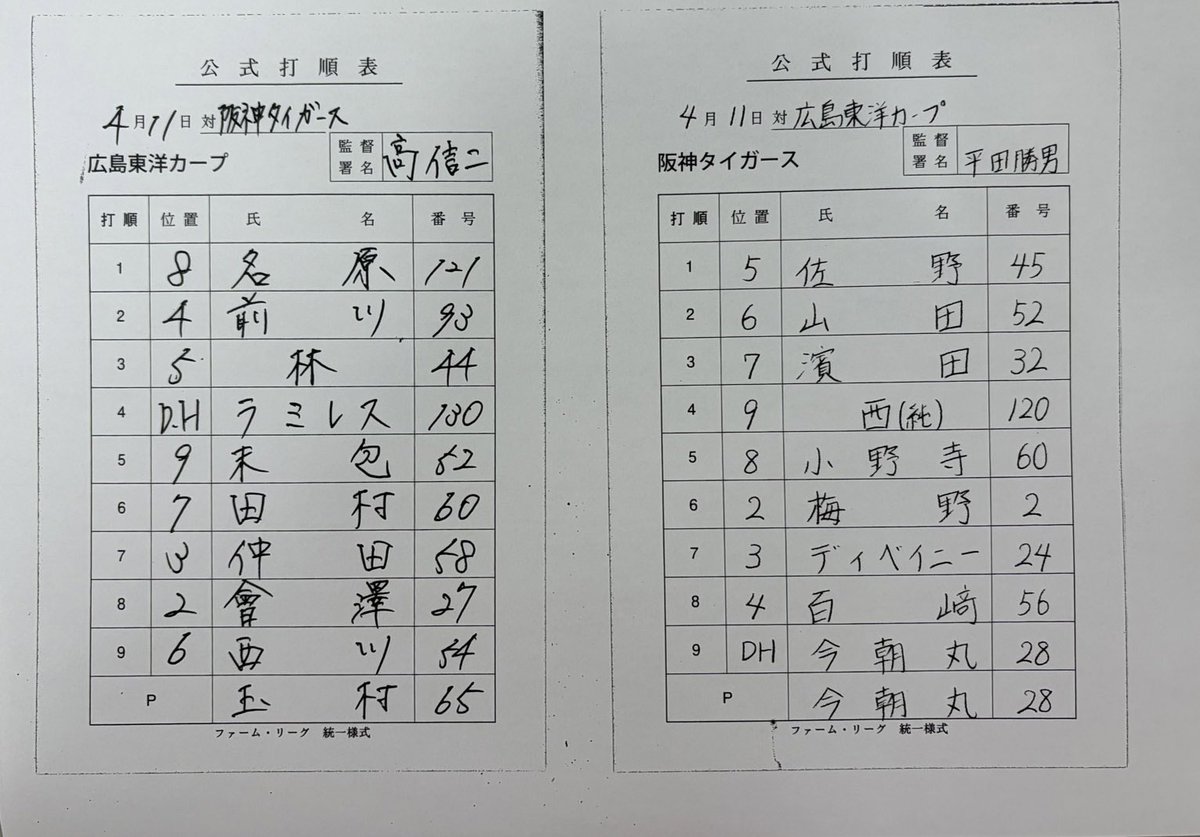 公式打順表
4月11日 対 阪神タイガース
広島東洋カープ 監督署名 高信二
打順 位置 氏名 番号
1 8 名原 121
2 4 前川 93
3 5 林 44
4 D.H ラミレス 130
5 9 末包 52
6 7 田村 60
7 3 仲田 58
8 2 會澤 27
9 6 西川 54
P 玉村 65
ファーム・リーグ 統一様式
公式打順表
4月11日 対 広島東洋カープ
阪神タイガース 監督署名 平田勝男
打順 位置 氏名 番号
1 5 佐野 45
2 6 山田 52
3 7 濱田 32
4 9 西(純) 120
5 8 小野寺 60
6 2 梅野 2
7 3 ディベイニー 24
8 4 百﨑 56
9 DH 今朝丸 28
P 今朝丸 28
ファーム・リーグ 統一様式